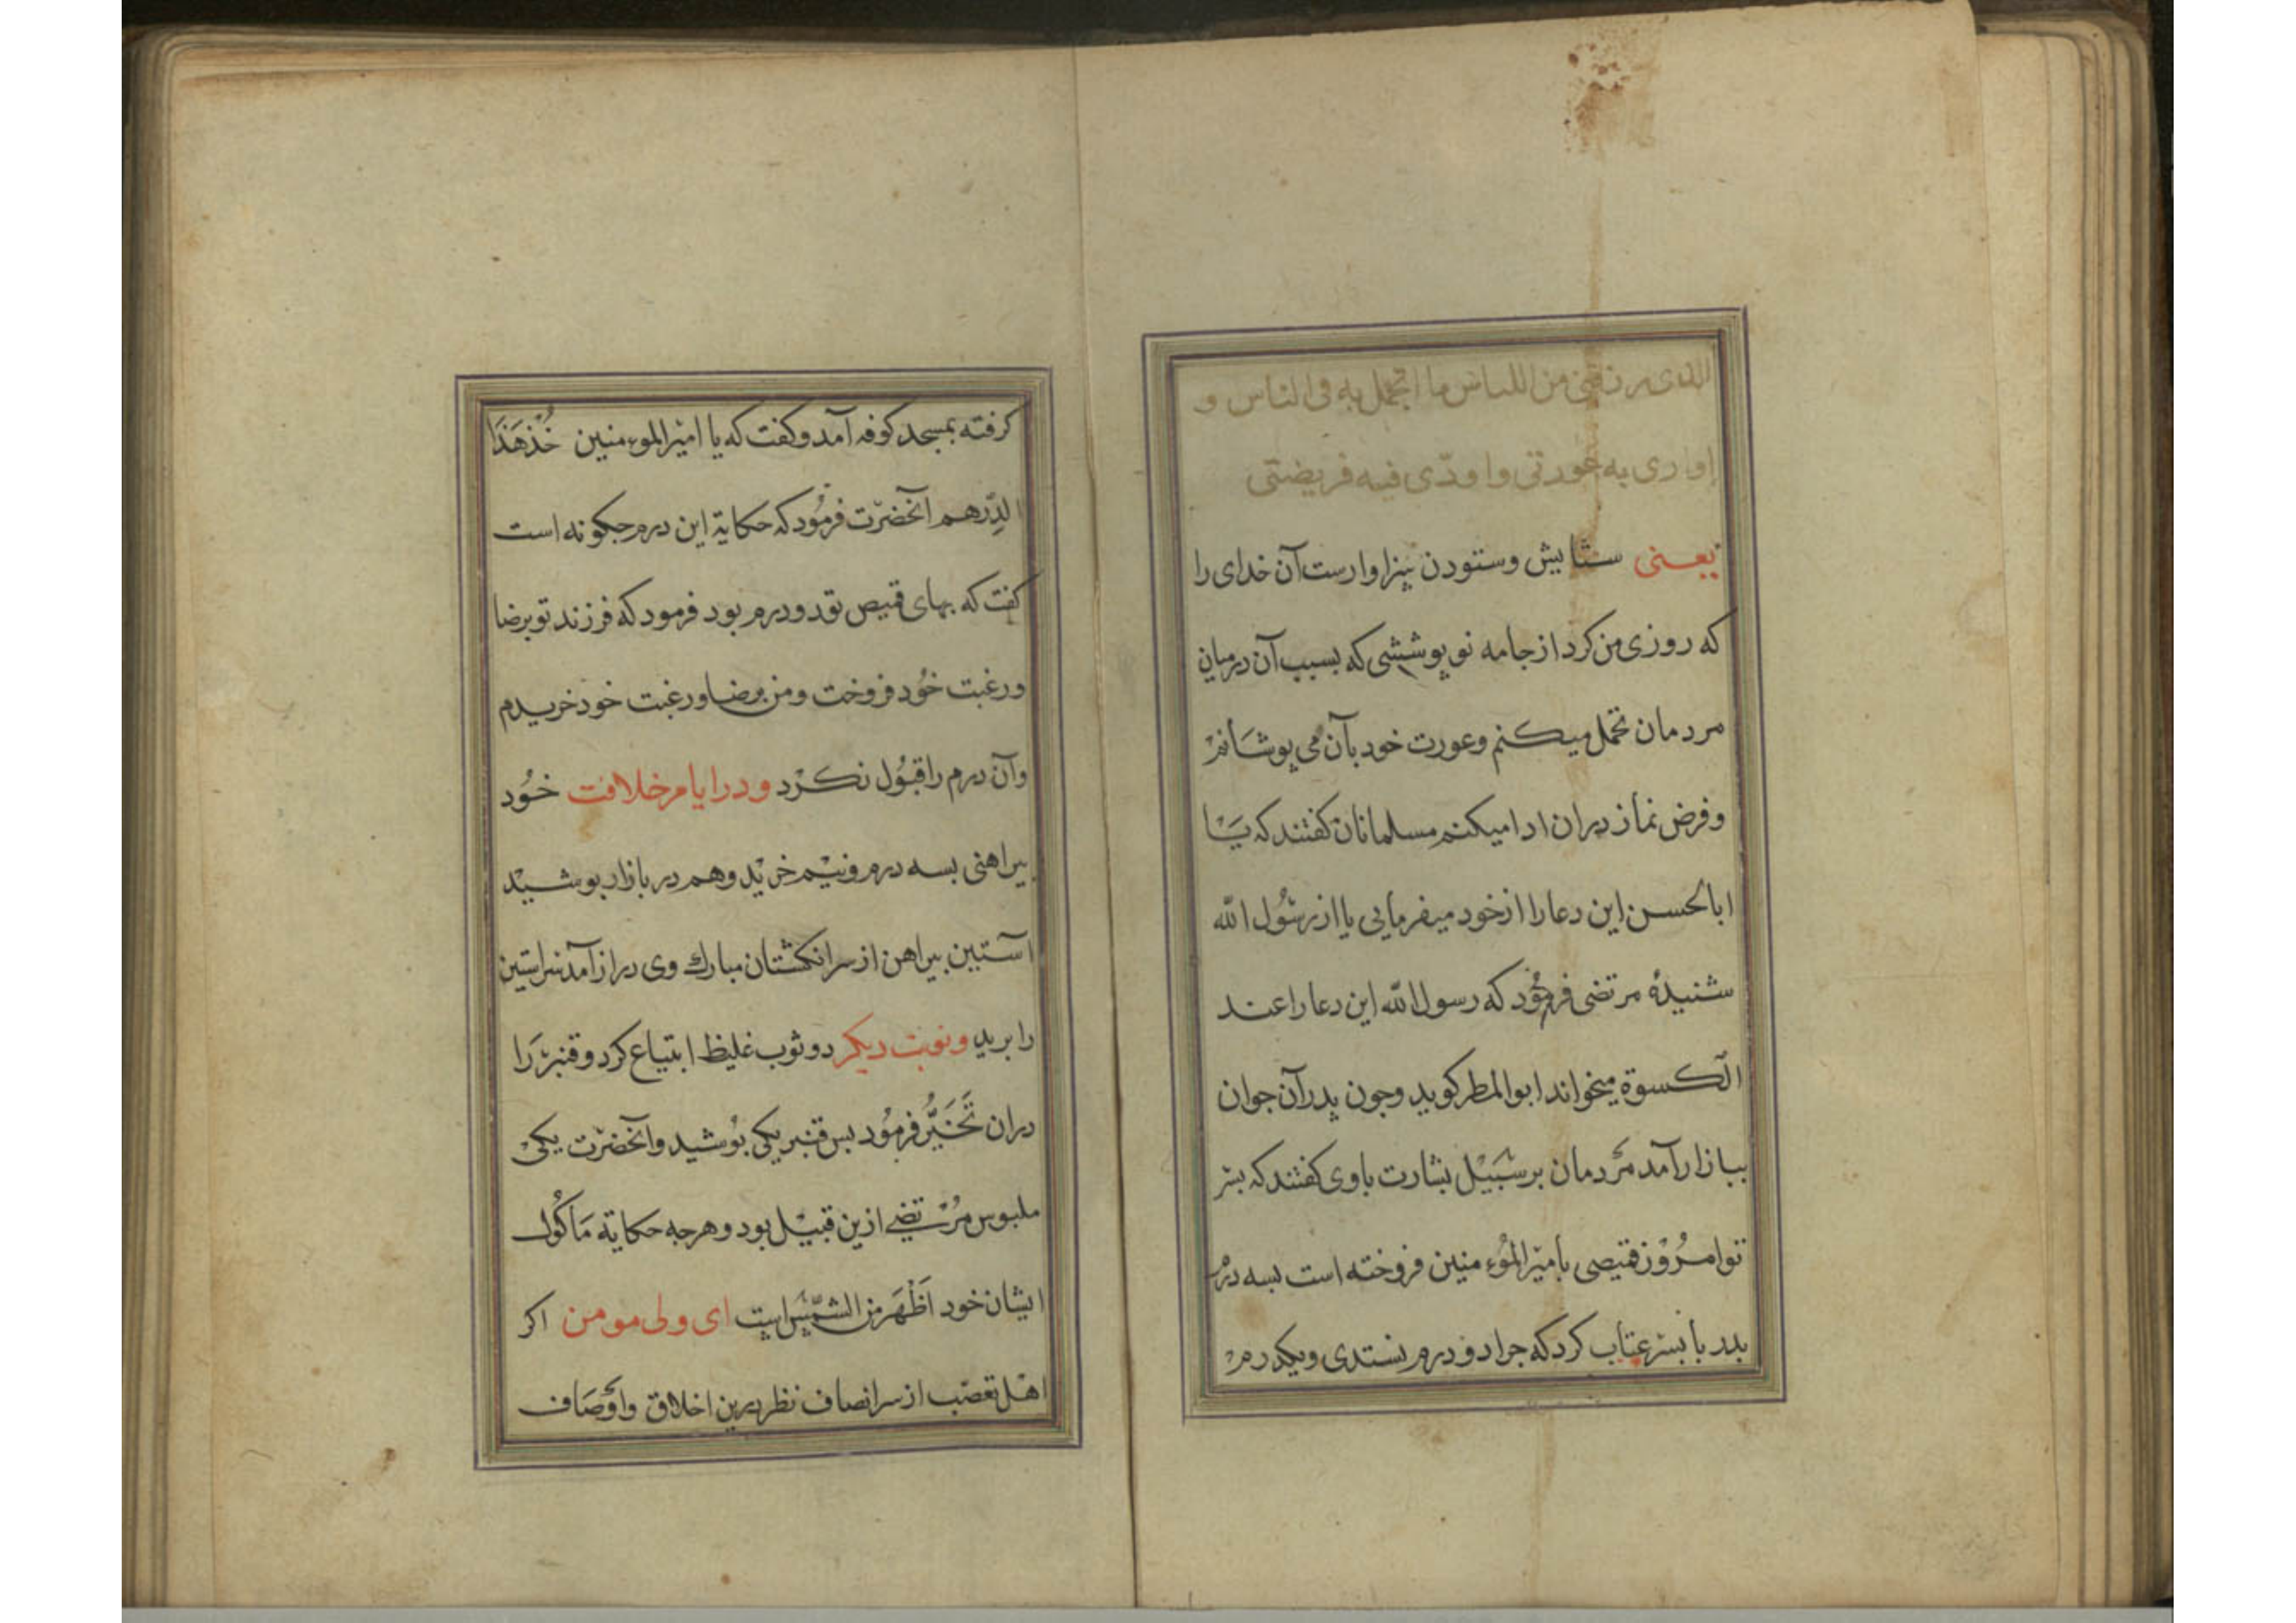 الذی رزقنی من اللباس ما اتجمل به فی الناس و
اواری به عورتی واودّی فیه فریضتی
یعنی ستایش وستودن سزاوارست آن خدای را
که روزی من کرد از جامه نو پوششی که بسبب آن درمیان
مردمان تجمل میکنم وعورت خود بآن می پوشانم
وفرض نماز دران ادا میکنم مسلمانان کفتند که یَا
اباالحسن این دعا را از خود میفرمایی یا از رسُول الله
شنیدهٔ مرتضی فرمُود که رسول الله این دعا را عند
الکسوة میخواند ابوالمطر کوید وجون پدر آن جوان
ببازار آمد مردمان بر سَبیْل بشارت باوی کفتند که بسر
تو امرُوْز قمیصی بامیْرالمُوءمنین فروخته است بسه درم
بدر با بسر عتاب کرد که جرا دو درم نستدی ویکدرم
کرفته بمسجد کوفه آمد وکفت که یا امیْرالموءمنین خُذْ هَذَا
الدِّرهم آنحضرْت فرمُود که حکایة این درم جکونه است
کفت که بهای قمیص تو دو درم بود فرمود که فرزند تو برضا
ورغبت خُود فروخت ومن برضا ورغبت خود خریدم
وآن درم را قبُول نکرْد ودر ایام خلافت خُود
بیراهنی بسه درم ونیْم خریْد وهم در بازار بوشیْد
آستین بیراهن از سر انکشتان مبارك وی دراز آمد سر استین
را برید ونوبت دیکر دو ثوب غلیظ ابتیاع کرد وقنبرْ رَا
دران تَخَیُّر فرمُود بس قنبر یکی بوْشید وآنحضرْت یکیْ
ملبوس مرُتضے ازین قبیْل بود وهرجه حکایة مَاکُول
ایشان خود اَظْهَر من الشمْس است ای ولی مومن اکر
اهْل تعصّب از سر انصاف نظر برین اخلاق واوْصَاف